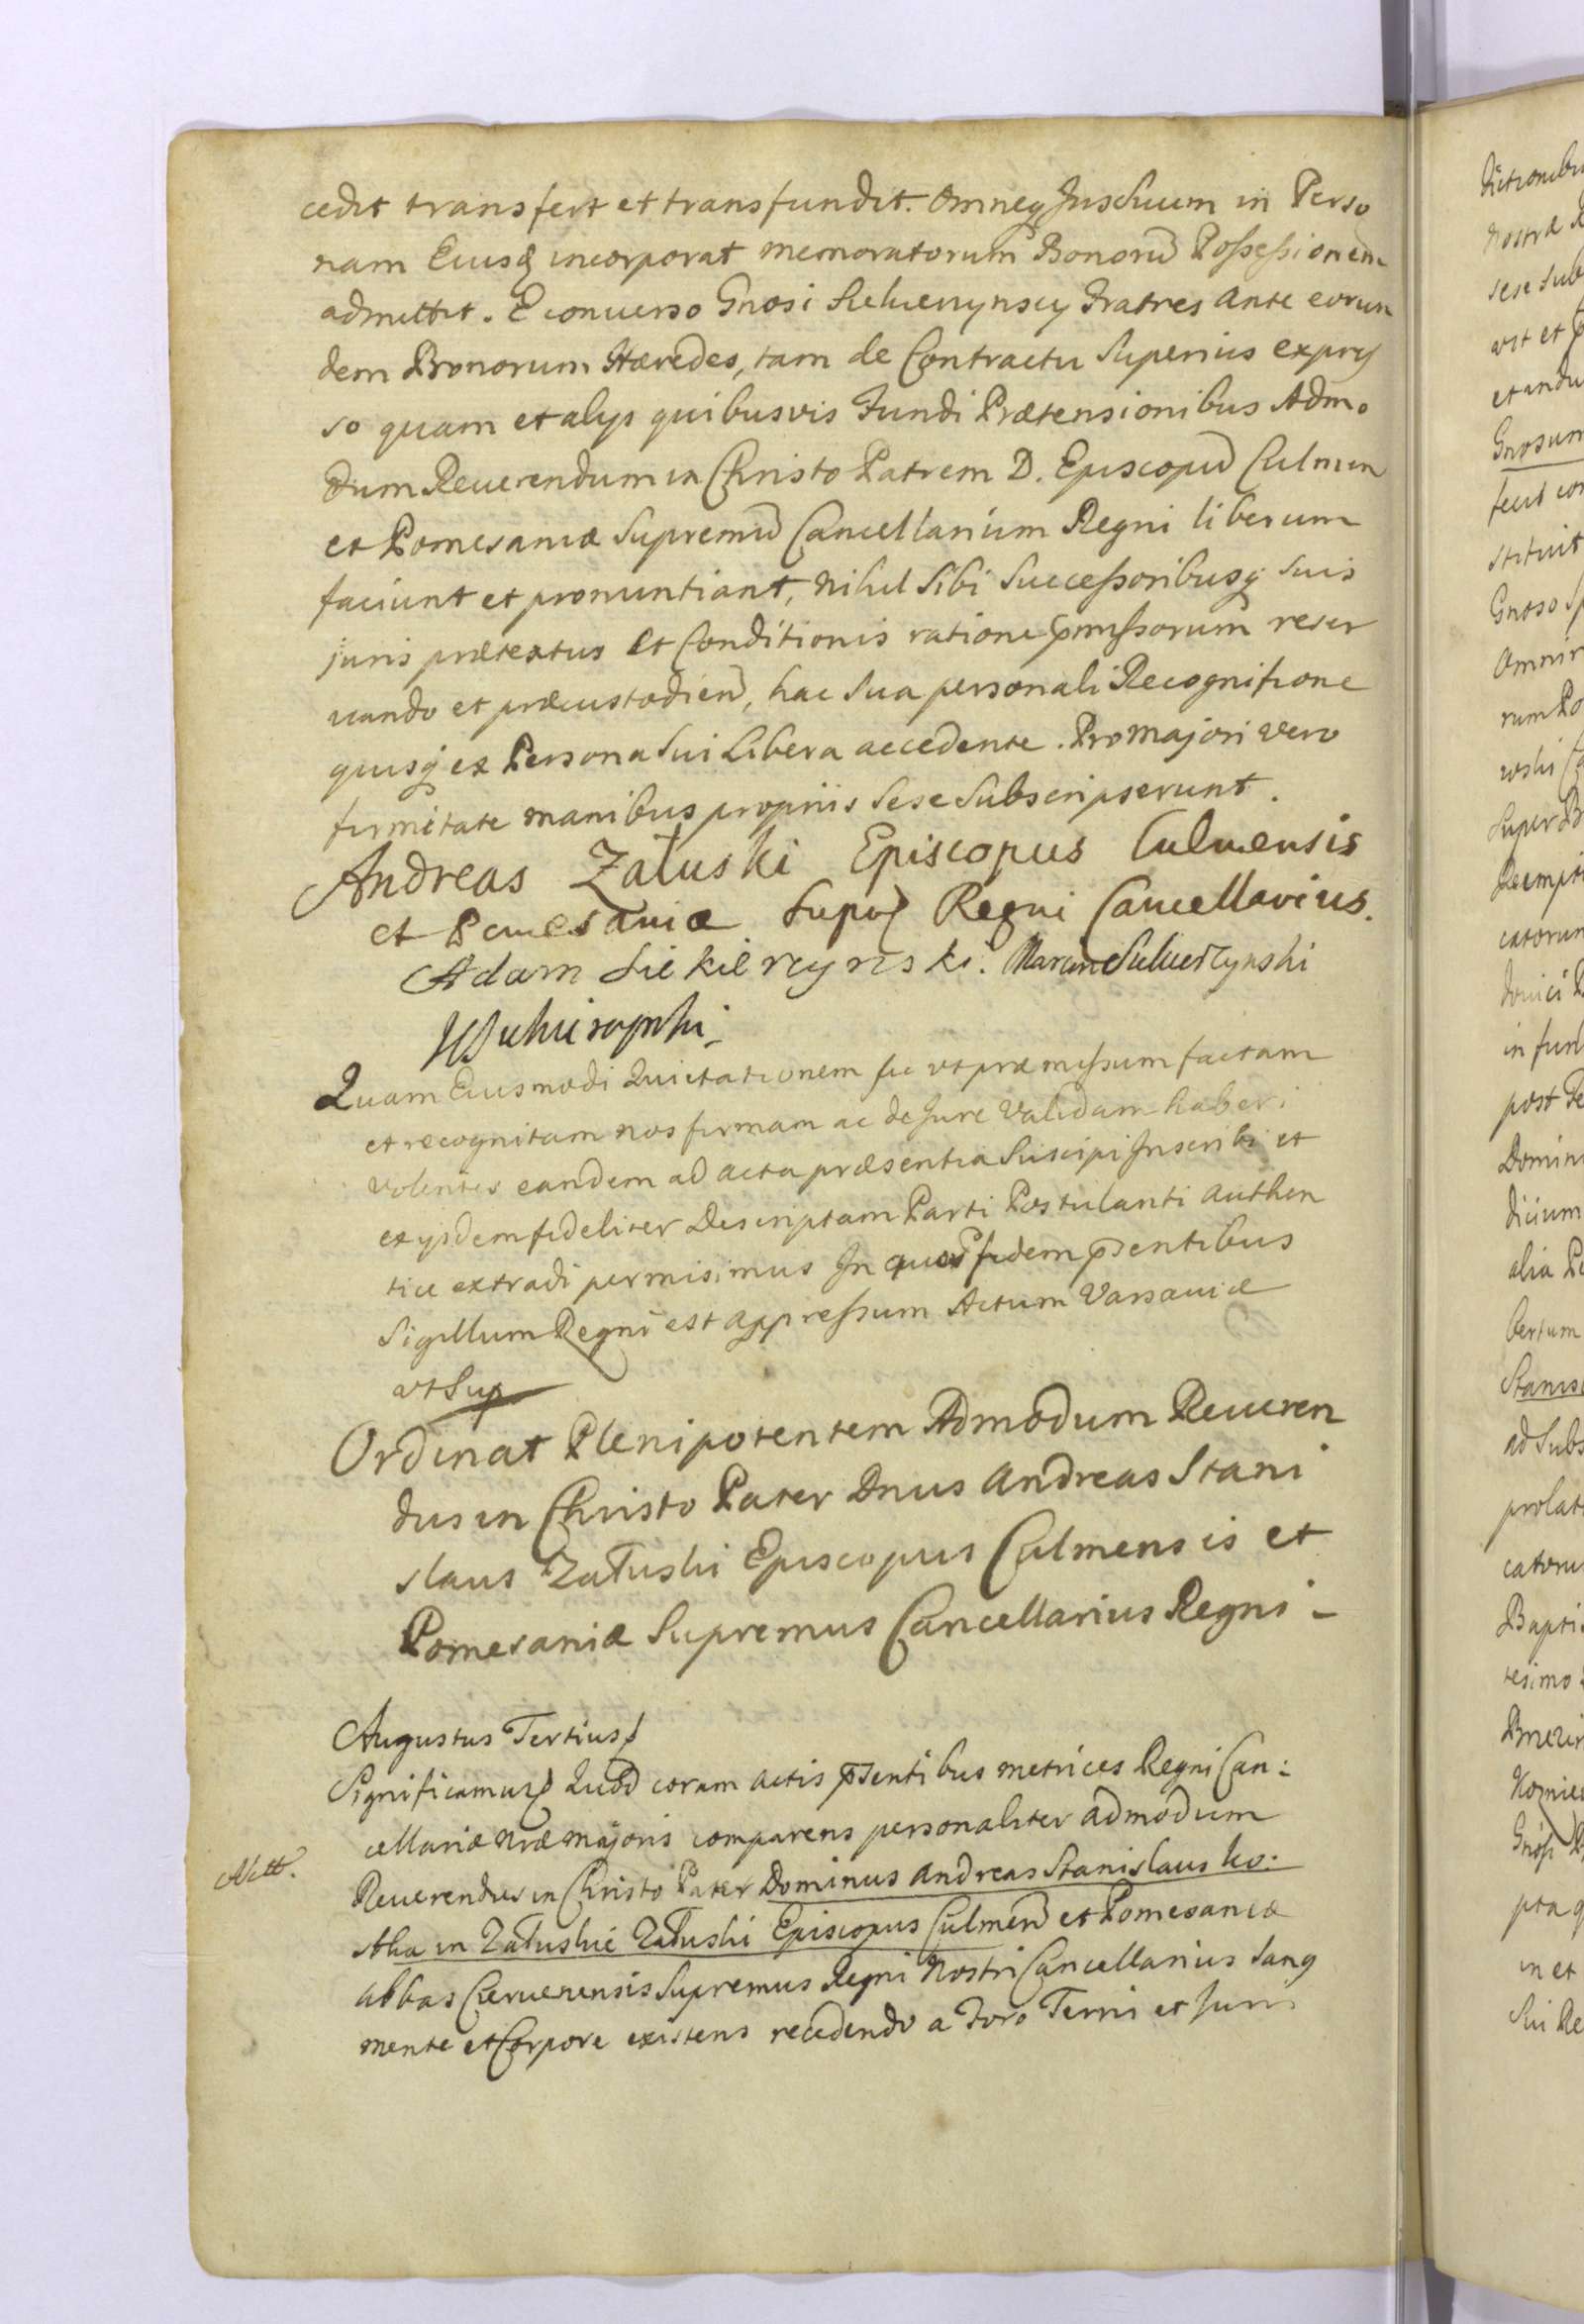 cedit transfert et transfundit. Omneq Jus Suum in Perso
nam Eiusq incorporat memoratorum Bonorũ Possessionem
admittit. E conuerso Gnosi Siekierzynscy Fratres ante eorun
dem Bonorum Hæredes, tam de Contractu Superius expres
so quam et alys quibusvis Fundi Prætensionibus Admo
dum Reuerendum in Christo Patrem D. Episcopũ Culmen
et Pomesaniæ Supremũ Cancellarium Regni liberum
faciunt et pronuntiant, nihil Sibi Successoribusq suis
juris prætextus et Conditionis ratione pmissorum reser
uando et præcustodien, hac Sua personali Recognitione
quisq ex Persona Sui Libera accedente. Pro majori vero
firmitate manibus propriis Sese Subscripserunt.
Andreas Załuski Episcopus Culmensis
et Pomesaniæ Supr Regni Cancellarius.
Adam Siekierzynski. Marcin Siekierzynski
Quam Eiusmodi Quietationem sic ut præmissum factam
et recognitam nos firmam ac de Jure Validam haberi
volentes eandem ad acta præsentia Suscipi Inscribi et
ex ijsdem fideliter Descriptam Parti Postulanti authen
tice extradi permisimus In quor fidem psentibus
Sigillum Regni est appressum Actum Varsauiæ
ut Sup
Ordinat Plenipotentem Admodum Reueren
dus in Christo Pater Dnus Andreas Stani
slaus Załuski Episcopus Culmensis et
Pomesaniæ Supremus Cancellarius Regni -
Augustus Tertius
Significamus Quod coram actis psentibus metrices Regni Can:
cellariæ nræ majoris comparens personaliter admodum
Reuerendus in Christo Pater Dominus Andreas Stanislaus ko:
stka in Załuskie Załuski Episcopus Culmen et Pomesaniæ
abbas Czeruenensis Supremus Regni Nostri Cancellarius Sang
mente et Corpore existens recedendo a Foro Terris et Juris
Gnosum
stituit
Gnoso
Super
post
Domin
dicium
alia
bertum
Stanis
ad Subs
prolat
Bapti
in et